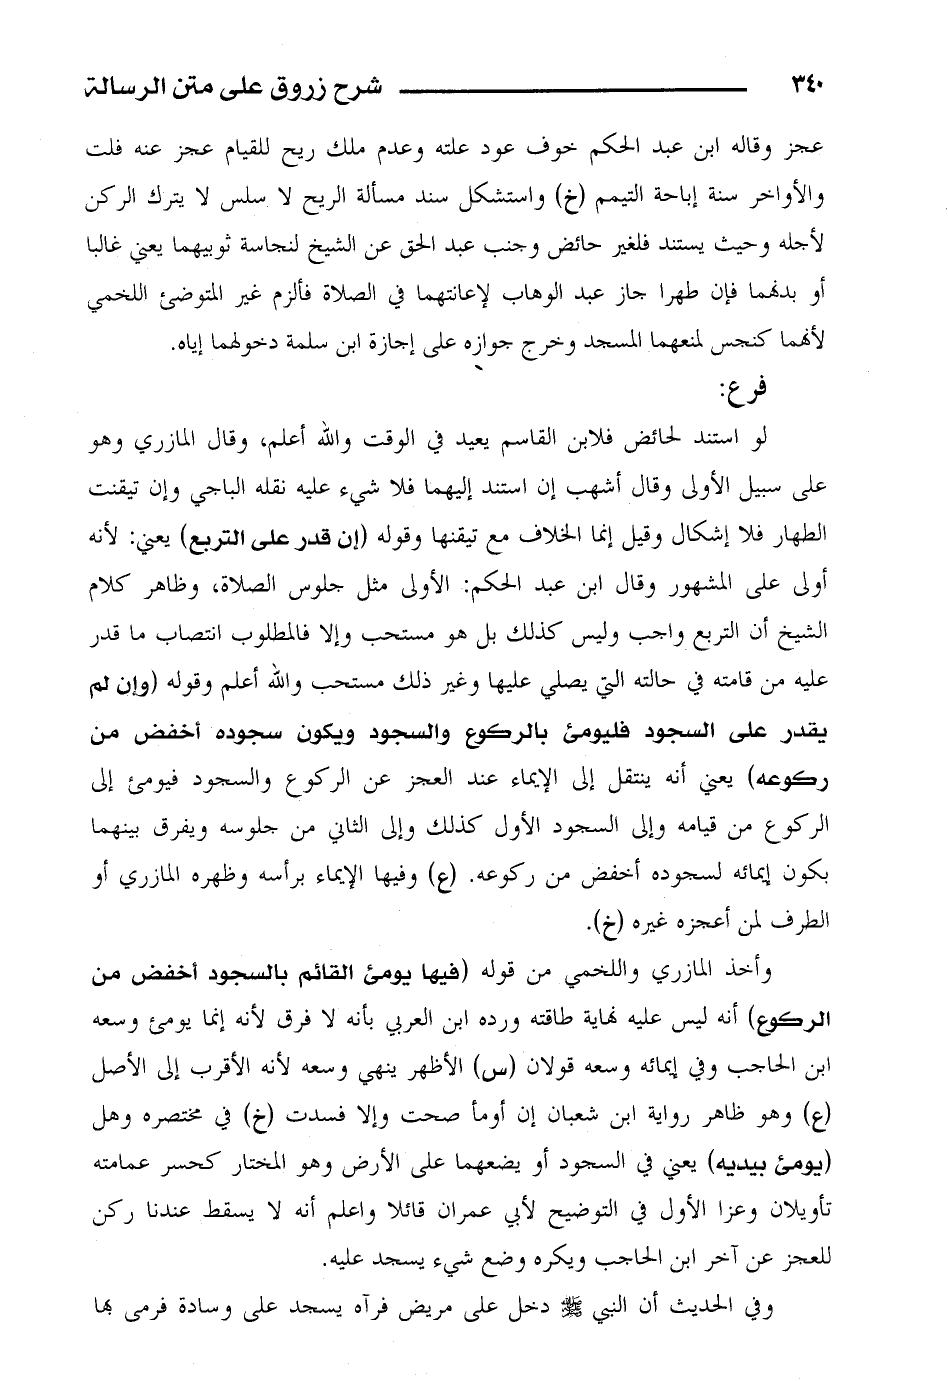 ٣٤٠ شرح زروق على متن الرسالة
عجز وقاله ابن عبد الحكم خوف عود علته وعدم ملك ريح للقيام عجز عنه فلت
والأواخر سنة إباحة التيمم (خ) واستشكل سند مسألة الريح لا سلس لا يترك الركن
لأجله وحيث يستند فلغير حائض وجنب عبد الحق عن الشيخ لنجاسة ثوبيهما يعني غالبا
أو بدنهما فإن طهرا جاز عبد الوهاب لإعانتهما في الصلاة فألزم غير المتوضئ اللخمي
لأنهما كنجس لمنعهما المسجد وخرج جوازه على إجازة ابن سلمة دخولهما إياه.
فرع:
لو استند لحائض فلابن القاسم يعيد في الوقت والله أعلم، وقال المازري وهو
على سبيل الأولى وقال أشهب إن استند إليهما فلا شيء عليه نقله الباجي وإن تيقنت
الطهار فلا إشكال وقيل إنما الخلاف مع تيقنها وقوله (إن قدر على التربع) يعني: لأنه
أولى على المشهور وقال ابن عبد الحكم: الأولى مثل جلوس الصلاة، وظاهر كلام
الشيخ أن التربع واجب وليس كذلك بل هو مستحب وإلا فالمطلوب انتصاب ما قدر
عليه من قامته في حالته التي يصلي عليها وغير ذلك مستحب والله أعلم وقوله (وإن لم
يقدر على السجود فليومئ بالركوع والسجود ويكون سجوده أخفض من
ركوعه) يعني أنه ينتقل إلى الإيماء عند العجز عن الركوع والسجود فيومئ إلى
الركوع من قيامه وإلى السجود الأول كذلك وإلى الثاني من جلوسه ويفرق بينهما
بكون إيمائه لسجوده أخفض من ركوعه. (ع) وفيها الإيماء برأسه وظهره المازري أو
الطرف لمن أعجزه غيره (خ).
وأخذ المازري واللخمي من قوله (فيها يومئ القائم بالسجود أخفض من
الركوع) أنه ليس عليه نهاية طاقته ورده ابن العربي بأنه لا فرق لأنه إنما يومئ وسعه
ابن الحاجب وفي إيمائه وسعه قولان (س) الأظهر ينهي وسعه لأنه الأقرب إلى الأصل
(ع) وهو ظاهر رواية ابن شعبان إن أومأ صحت وإلا فسدت (خ) في مختصره وهل
(يومئ بيديه) يعني في السجود أو يضعهما على الأرض وهو المختار كحسر عمامته
تأويلان وعزا الأول في التوضيح لأبي عمران قائلا واعلم أنه لا يسقط عندنا ركن
للعجز عن آخر ابن الحاجب ويكره وضع شيء يسجد عليه.
وفي الحديث أن النبي ﷺ دخل على مريض فرآه يسجد على وسادة فرمى بها